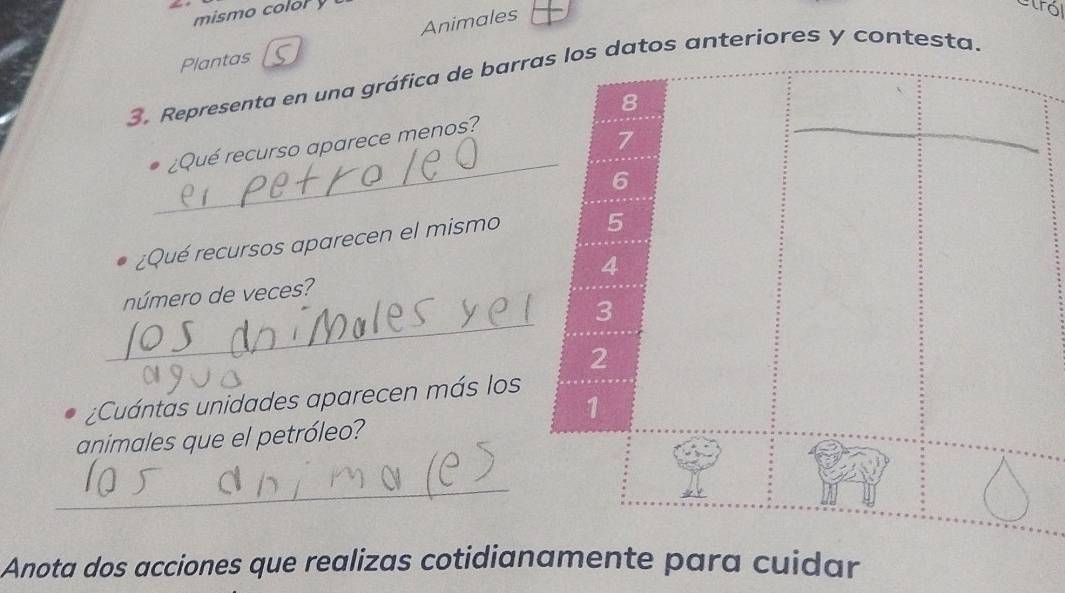 mismo color y
Animales
Plantas 5
3. Representa en una gráfica de barras los datos anteriores y contesta.
• ¿Qué recurso aparece menos?
el petroleo
• ¿Qué recursos aparecen el mismo
número de veces?
los animales y el
agua
• ¿Cuántas unidades aparecen más los
animales que el petróleo?
los animales
8
7
6
5
4
3
2
1
Anota dos acciones que realizas cotidianamente para cuidar